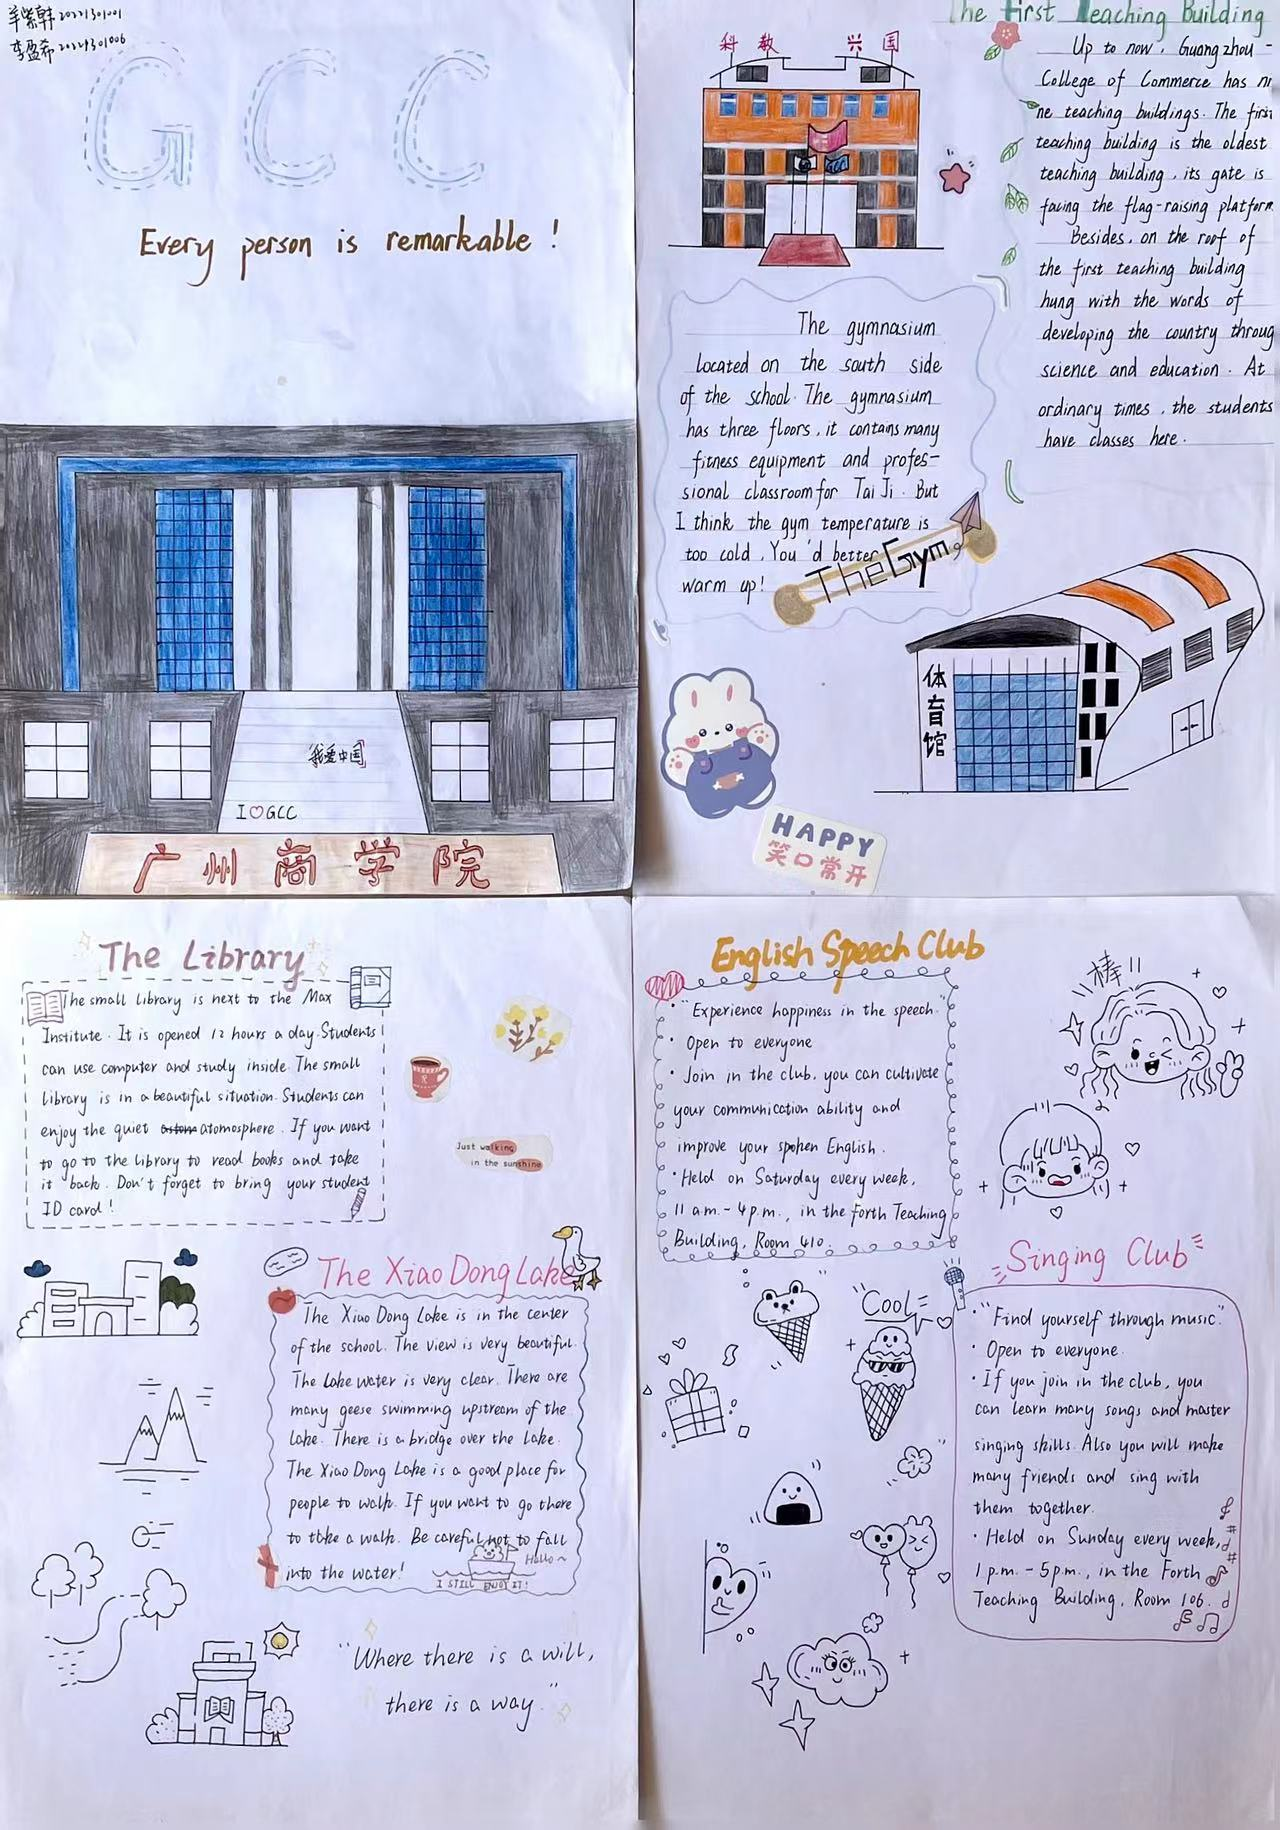 羊紫韩 20221301001
李盈希 20221301006
GCC
Every person is remarkable!
我爱中国
I♡GCC
广州商学院
The First Teaching Building
科教 兴国
Up to now, Guangzhou
College of Commerce has ni
ne teaching buildings. The first
teaching building is the oldest
teaching building, its gate is
facing the flag-raising platform
Besides, on the roof of
the first teaching building
hung with the words of
developing the country throug
science and education. At
ordinary times, the students
have classes here.
The gymnasium
located on the south side
of the school. The gymnasium
has three floors, it contains many
fitness equipment and profes-
sional classroom for Tai Ji. But
I think the gym temperature is
too cold. You'd better
warm up!
The Gym
体育馆
HAPPY
笑口常开
The Library
The small library is next to the Max
Institute. It is opened 12 hours a day. Students
can use computer and study inside. The small
library is in a beautiful situation. Students can
enjoy the quiet atomosphere. If you want
to go to the library to read books and take
it back. Don't forget to bring your student
ID card!
Just walking
in the sunshine
The Xiao Dong Lake
The Xiao Dong Lake is in the center
of the school. The view is very beautiful.
The lake water is very clear. There are
many geese swimming upstream of the
lake. There is a bridge over the lake.
The Xiao Dong Lake is a good place for
people to walk. If you want to go there
to take a walk. Be careful not to fall
into the water!
Hello~
I STILL ENJOY IT!
"Where there is a will,
there is a way."
English Speech Club
· "Experience happiness in the speech."
· Open to everyone
· Join in the club, you can cultivate
your communication ability and
improve your spoken English.
· Held on Saturday every week,
11 a.m. - 4 p.m., in the Forth Teaching
Building, Room 410.
棒!!
"Cool
Singing Club
· "Find yourself through music."
· Open to everyone.
· If you join in the club, you
can learn many songs and master
singing skills. Also you will make
many friends and sing with
them together.
· Held on Sunday every week,
1 p.m. - 5 p.m., in the Forth
Teaching Building, Room 106.